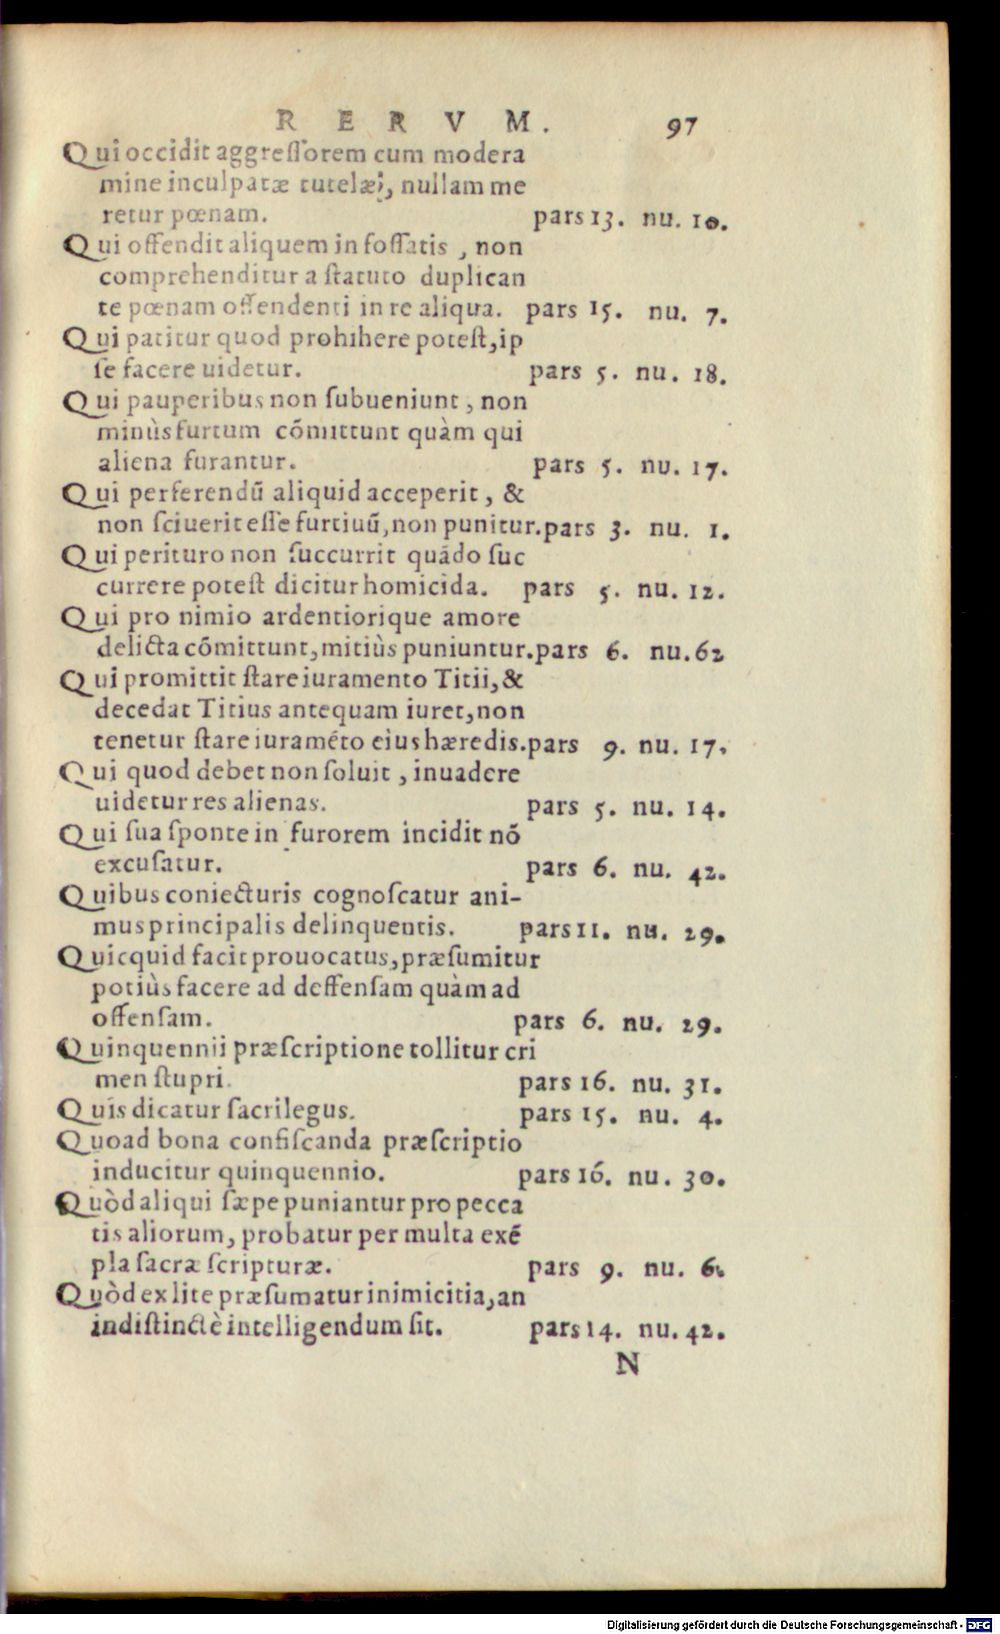 RERVM. 97
Qui occidit aggreſſorem cum modera
mine inculpatæ tutelæ, nullam me
retur pœnam. pars 13. nu. 10.
Qui offendit aliquem in foſſatis, non
comprehenditur a ſtatuto duplican
te pœnam offendenti in re aliqua. pars 15. nu. 7.
Qui patitur quod prohihere poteſt, ip
ſe facere uidetur. pars 5. nu. 18.
Qui pauperibus non ſubueniunt, non
minùs furtum cõmittunt quàm qui
aliena furantur. pars 5. nu. 17.
Qui perferendũ aliquid acceperit, &
non ſciuerit eſſe furtiuũ, non punitur. pars 3. nu. 1.
Qui perituro non ſuccurrit quãdo ſuc
currere poteſt dicitur homicida. pars 5. nu. 12.
Qui pro nimio ardentiorique amore
delicta cõmittunt, mitiùs puniuntur. pars 6. nu. 62
Qui promittit ſtare iuramento Titii, &
decedat Titius antequam iuret, non
tenetur ſtare iuramẽto eius hæredis. pars 9. nu. 17.
Qui quod debet non ſoluit, inuadere
uidetur res alienas. pars 5. nu. 14.
Qui ſua ſponte in furorem incidit nõ
excuſatur. pars 6. nu. 42.
Quibus coniecturis cognoſcatur ani-
mus principalis delinquentis. pars 11. nu. 29.
Quicquid facit prouocatus, præſumitur
potiùs facere ad deffenſam quàm ad
offenſam. pars 6. nu. 29.
Quinquennii præſcriptione tollitur cri
men ſtupri. pars 16. nu. 31.
Quis dicatur ſacrilegus. pars 15. nu. 4.
Quoad bona confiſcanda præſcriptio
inducitur quinquennio. pars 16. nu. 30.
Quòd aliqui ſæpe puniantur pro pecca
tis aliorum, probatur per multa exẽ
pla ſacræ ſcripturæ. pars 9. nu. 6.
Quòd ex lite præſumatur inimicitia, an
indiſtinctè intelligendum ſit. pars 14. nu. 42.
N
Digitalisierung gefördert durch die Deutsche Forschungsgemeinschaft - DFG